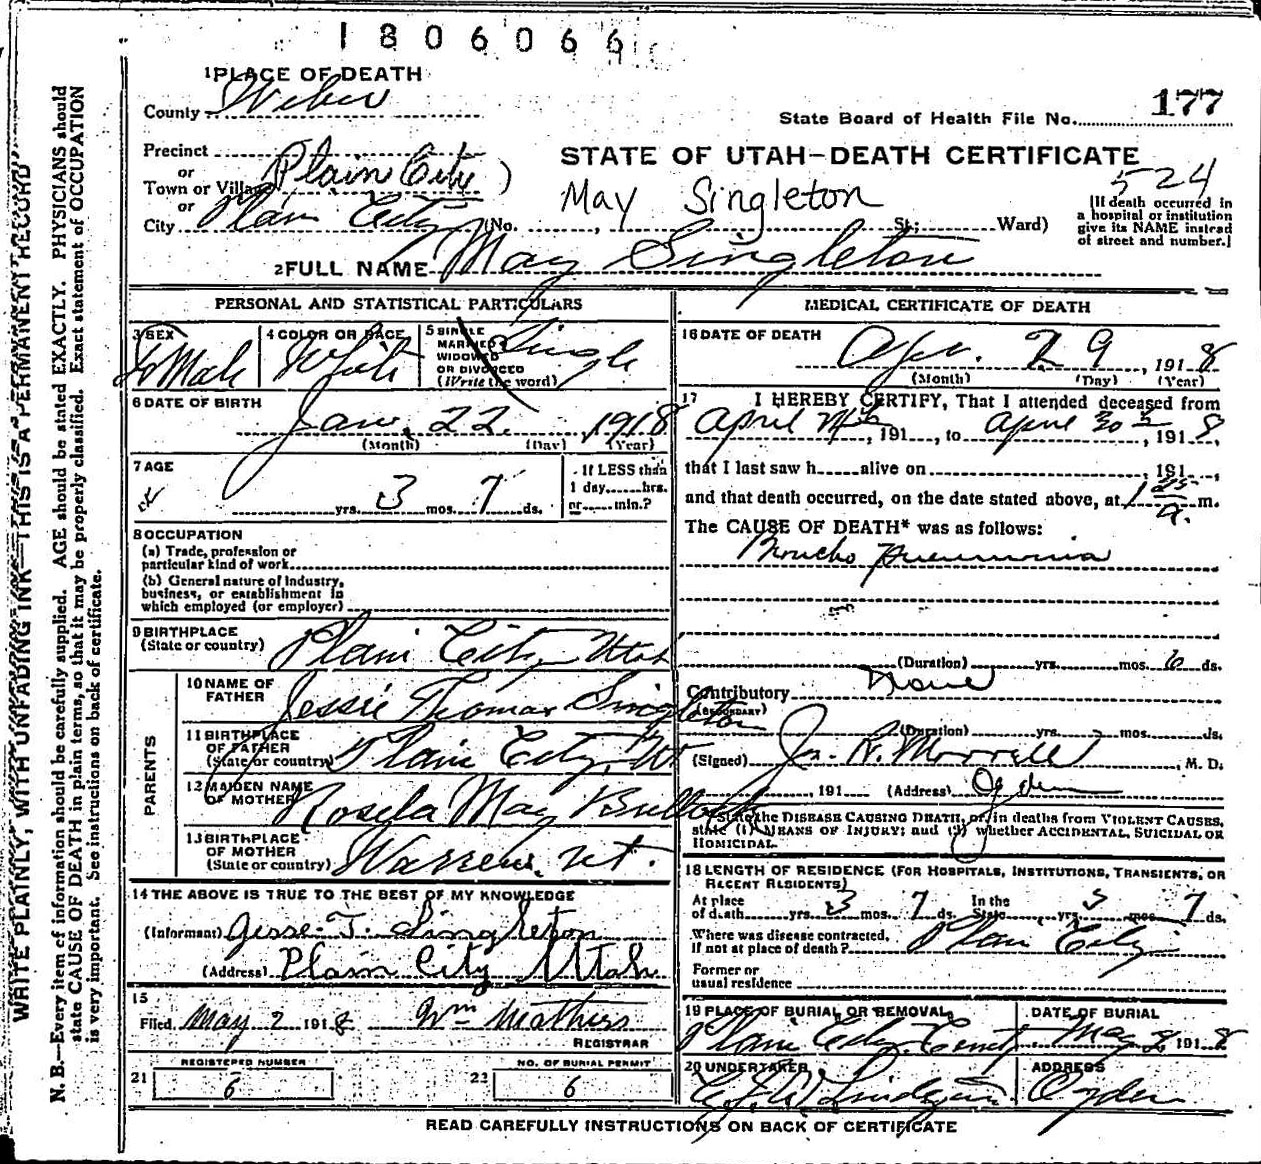 1806066
1 PLACE OF DEATH
County Weber
177
State Board of Health File No.
Precinct
or
Town or Village Plain City
or
City Plain City (No. , St.; Ward)
STATE OF UTAH—DEATH CERTIFICATE
524
May Singleton
[If death occurred in
a hospital or institution
give its NAME instead
of street and number.]
2 FULL NAME May Singleton
PERSONAL AND STATISTICAL PARTICULARS
3 SEX
Female
4 COLOR OR RACE
White
5 SINGLE
MARRIED
WIDOWED
OR DIVORCED
(Write the word)
Single
6 DATE OF BIRTH
Jan. 22. 1918
(Month) (Day) (Year)
7 AGE
yrs. 3 mos. 7 ds.
If LESS than
1 day......hrs.
or......min.?
8 OCCUPATION
(a) Trade, profession or
particular kind of work
(b) General nature of Industry,
business, or establishment in
which employed (or employer)
9 BIRTHPLACE
(State or country) Plain City Utah
PARENTS
10 NAME OF
FATHER Jessie Thomas Singleton
11 BIRTHPLACE
OF FATHER
(State or country) Plain City, Ut
12 MAIDEN NAME
OF MOTHER Rosela May
13 BIRTHPLACE
OF MOTHER
(State or country) Warren, Ut.
14 THE ABOVE IS TRUE TO THE BEST OF MY KNOWLEDGE
(Informant) Jesse T. Singleton
(Address) Plain City Utah
15
Filed May 2 1918 Wm Mathers
REGISTRAR
REGISTERED NUMBER
21 6
NO. OF BURIAL PERMIT
22 6
MEDICAL CERTIFICATE OF DEATH
16 DATE OF DEATH
Apr. 29, 1918
(Month) (Day) (Year)
17 I HEREBY CERTIFY, That I attended deceased from
April , 191 , to April 30, 1918,
that I last saw h alive on , 191 ,
and that death occurred, on the date stated above, at 1 a. m.
The CAUSE OF DEATH* was as follows:
Broncho Pneumonia
(Duration) yrs. mos. 6 ds.
Contributory None
(SECONDARY)
(Duration) yrs. mos. ds.
(Signed) Jn. R. Morrell, M. D.
, 191 (Address) Ogden
*State the DISEASE CAUSING DEATH, or, in deaths from VIOLENT CAUSES,
state (1) MEANS OF INJURY; and (2) whether ACCIDENTAL, SUICIDAL OR
HOMICIDAL.
18 LENGTH OF RESIDENCE (FOR HOSPITALS, INSTITUTIONS, TRANSIENTS, OR
RECENT RESIDENTS)
At place
of death yrs. 3 mos. 7 ds. In the
State yrs. 3 mos. 7 ds.
Where was disease contracted,
if not at place of death? Plain City
Former or
usual residence
19 PLACE OF BURIAL OR REMOVAL
Plain City Cemt.
DATE OF BURIAL
May 2, 1918
20 UNDERTAKER
ADDRESS
Ogden
READ CAREFULLY INSTRUCTIONS ON BACK OF CERTIFICATE
WRITE PLAINLY, WITH UNFADING INK—THIS IS A PERMANENT RECORD
N. B.—Every item of information should be carefully supplied. AGE should be stated EXACTLY. PHYSICIANS should
state CAUSE OF DEATH in plain terms, so that it may be properly classified. Exact statement of OCCUPATION
is very important. See instructions on back of certificate.